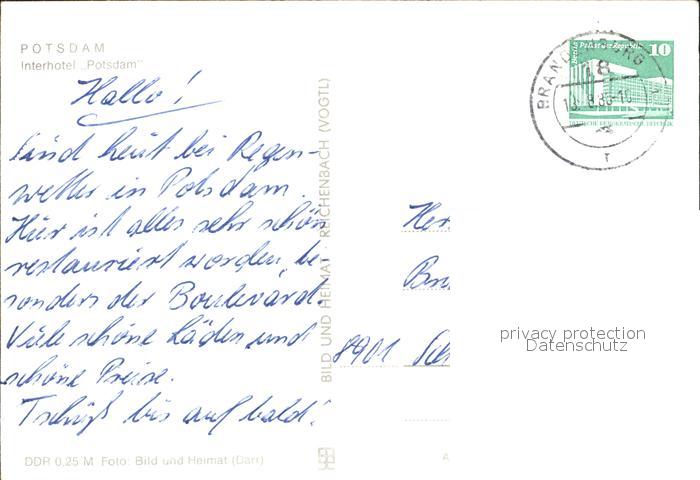 POTSDAM
Interhotel „Potsdam"
Hallo!
Sind heut bei Regen-
wetter in Potsdam.
Hier ist alles sehr schön
restauriert worden, be-
sonders der Boulevard.
Viele schöne Läden und
schöne Preise.
Tschüß bis auf bald!
DDR 0,25 M Foto: Bild und Heimat (Darr)
BILD UND HEIMAT · REICHENBACH (VOGTL)
BRANDENBURG
18
Berlin Palast der Republik 10
DEUTSCHE DEMOKRATISCHE REPUBLIK
r
Her
8901 Sch
A
privacy protection
Datenschutz